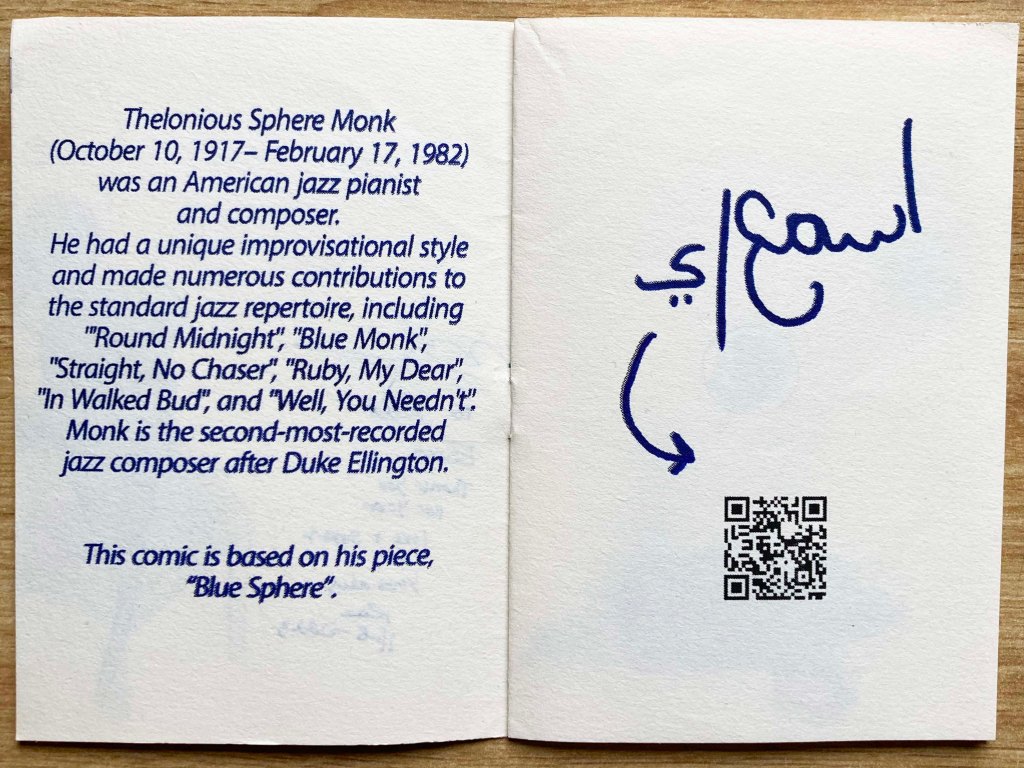 Thelonious Sphere Monk
(October 10, 1917– February 17, 1982)
was an American jazz pianist
and composer.
He had a unique improvisational style
and made numerous contributions to
the standard jazz repertoire, including
"'Round Midnight", "Blue Monk",
"Straight, No Chaser", "Ruby, My Dear",
"In Walked Bud", and "Well, You Needn't".
Monk is the second-most-recorded
jazz composer after Duke Ellington.
This comic is based on his piece,
“Blue Sphere”.
اسمع/ي